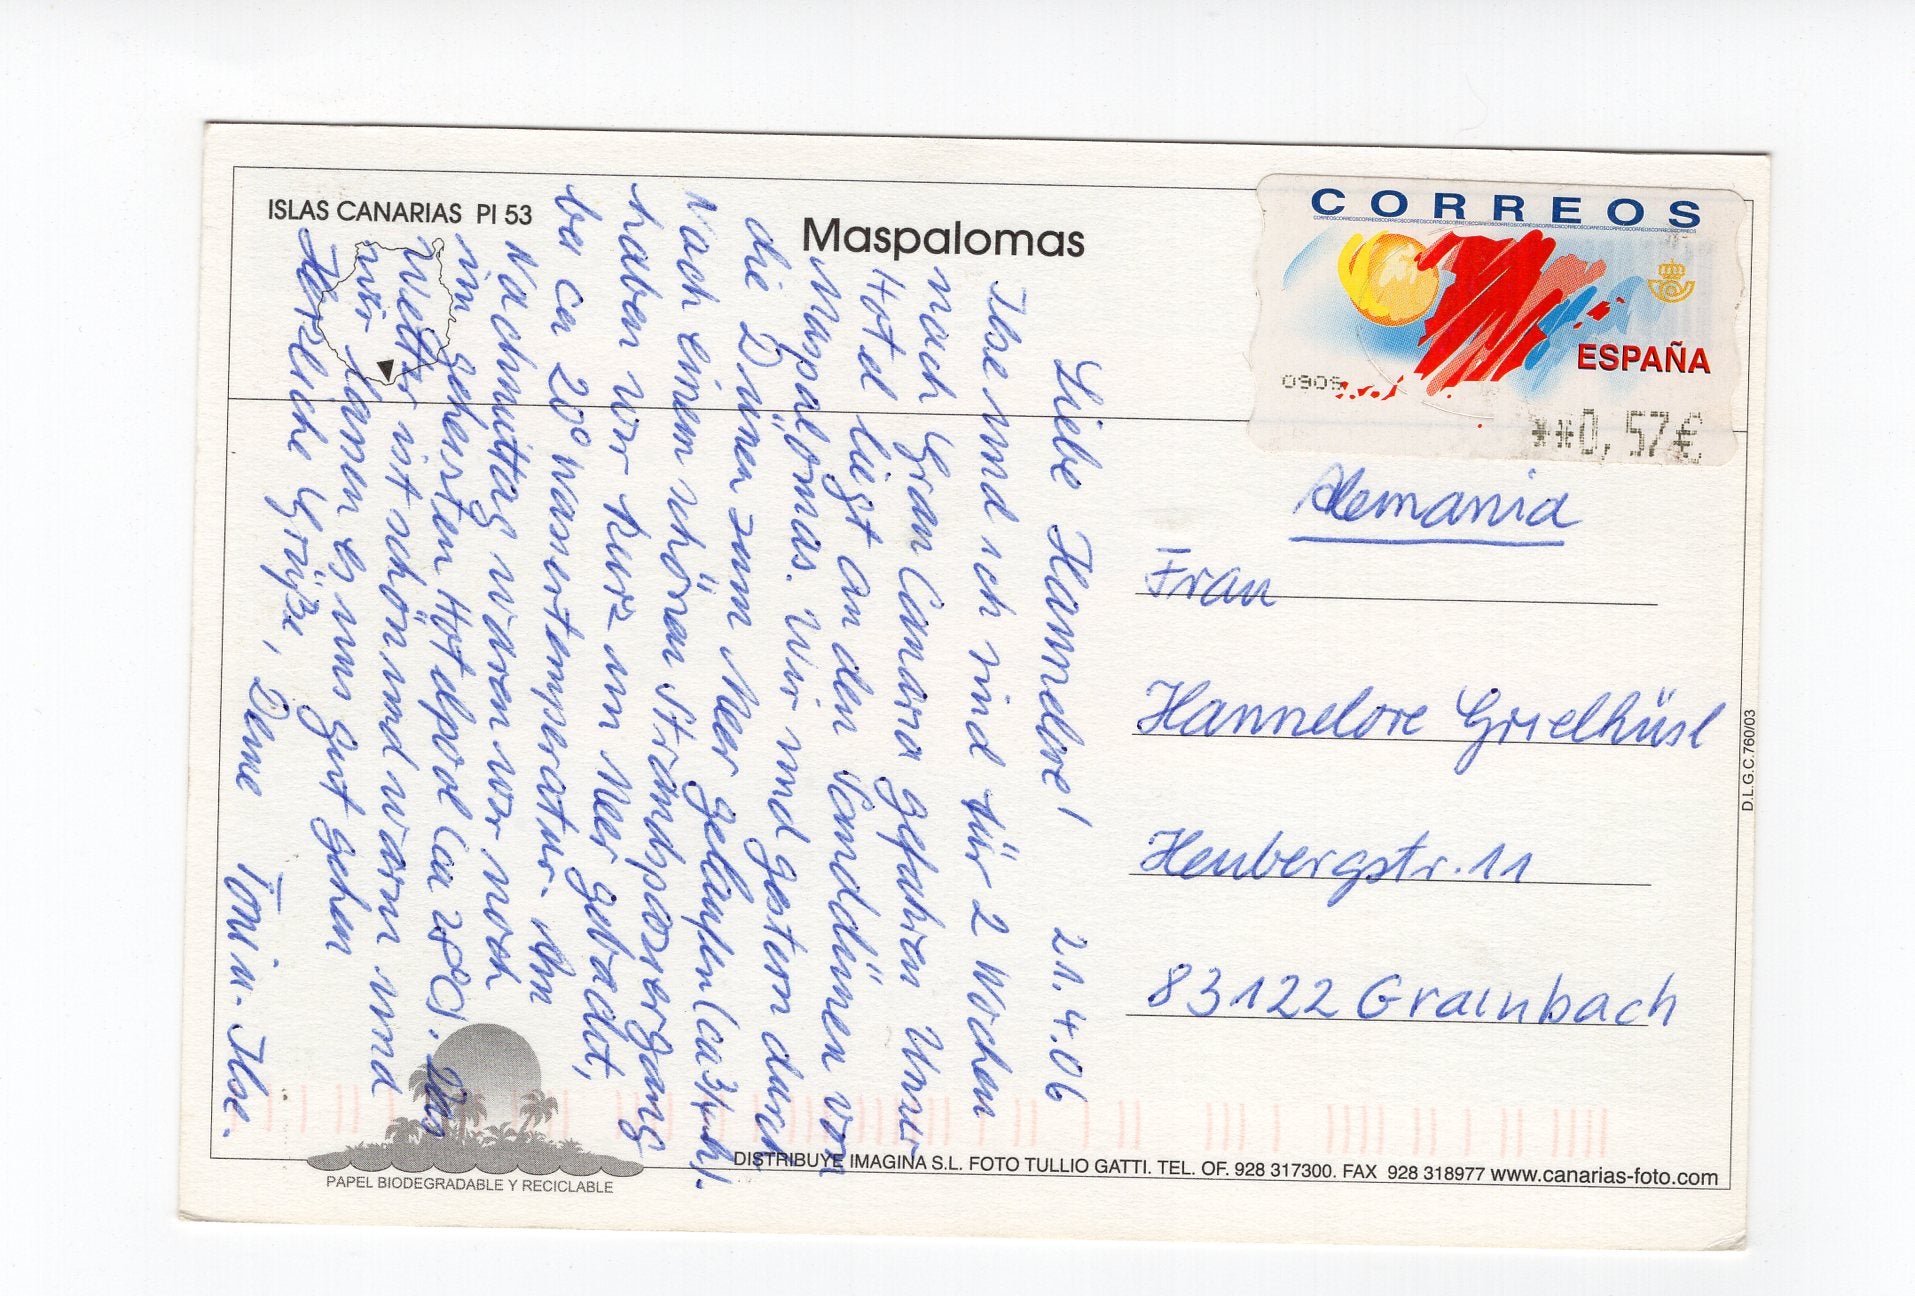 ISLAS CANARIAS PI 53
Maspalomas
CORREOS
ESPAÑA
0906
**0,57€
Liebe Hannelore! 21.4.06
Ilse und ich sind für 2 Wochen
nach Gran Canaria gefahren. Unser
Hotel liegt an den Sanddünen von
Maspalomas. Wir sind gestern durch
die Dünen zum Meer gelaufen (ca 3/4 h).
Nach einem schönen Strandspaziergang
haben wir kurz im Meer gebadet,
bei ca 20° Wassertemperatur. Am
Nachmittag waren wir noch
im geheizten Hotelpool (ca 28°). Das
Wetter ist schön und warm und
wir lassen es uns gut gehen
Herzliche Grüße, Deine Toni u. Ilse.
Alemania
Frau
Hannelore Grielhüsl
Heubergstr. 11
83122 Grainbach
D.L.G.C. 760/03
PAPEL BIODEGRADABLE Y RECICLABLE
DISTRIBUYE IMAGINA S.L. FOTO TULLIO GATTI. TEL. OF. 928 317300. FAX 928 318977 www.canarias-foto.com